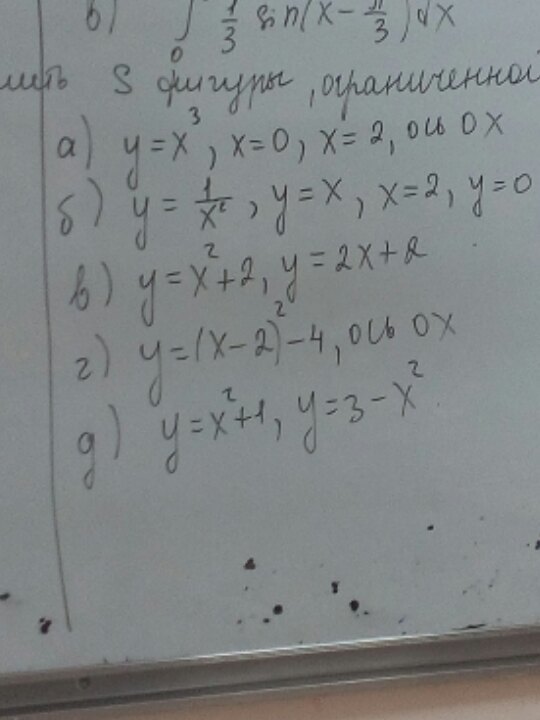 в) ∫₀ 1/3 sin(x − π/3)dx
S фигуры, ограниченной
а) y = x³, x = 0, x = 2, ось OX
б) y = 1/x², y = x, x = 2, y = 0
в) y = x² + 2, y = 2x + 2
г) y = (x − 2)² − 4, ось OX
д) y = x² + 1, y = 3 − x²